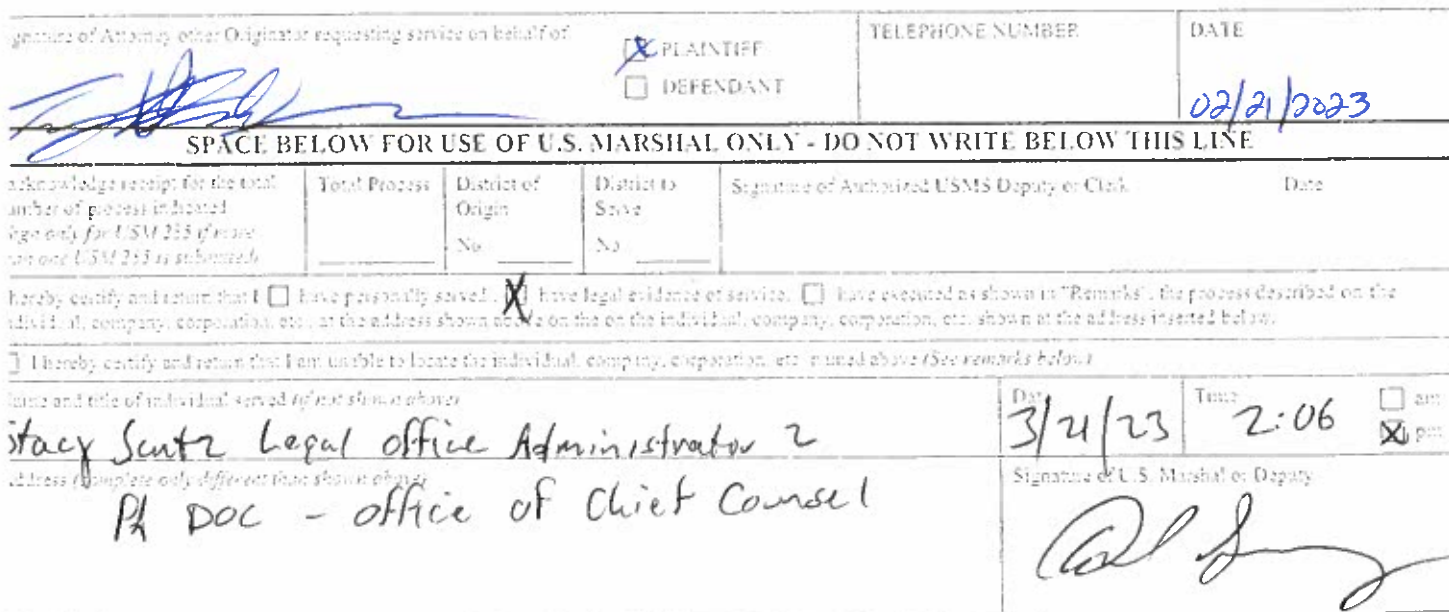 gnature of Attorney other Originator requesting service on behalf of:
PLAINTIFF
DEFENDANT
TELEPHONE NUMBER
DATE
02/21/2023
SPACE BELOW FOR USE OF U.S. MARSHAL ONLY - DO NOT WRITE BELOW THIS LINE
acknowledge receipt for the total
umber of process indicated
only for USM 285 if more
an one USM 285 is submitted)
Total Process
District of
Origin
No.
District to
Serve
No.
Signature of Authorized USMS Deputy or Clerk
Date
hereby certify and return that I have personally served, X have legal evidence of service, have executed as shown in "Remarks", the process described on the
individual, company, corporation, etc., at the address shown above on the on the individual, company, corporation, etc. shown at the address inserted below.
I hereby certify and return that I am unable to locate the individual, company, corporation, etc. named above (See remarks below)
ame and title of individual served (if not shown above)
Stacy Legal office Administrator 2
Date
3/21/23
Time
2:06
am
X pm
ddress (complete only different than shown above)
PA DOC - office of Chief Counsel
Signature of U.S. Marshal or Deputy